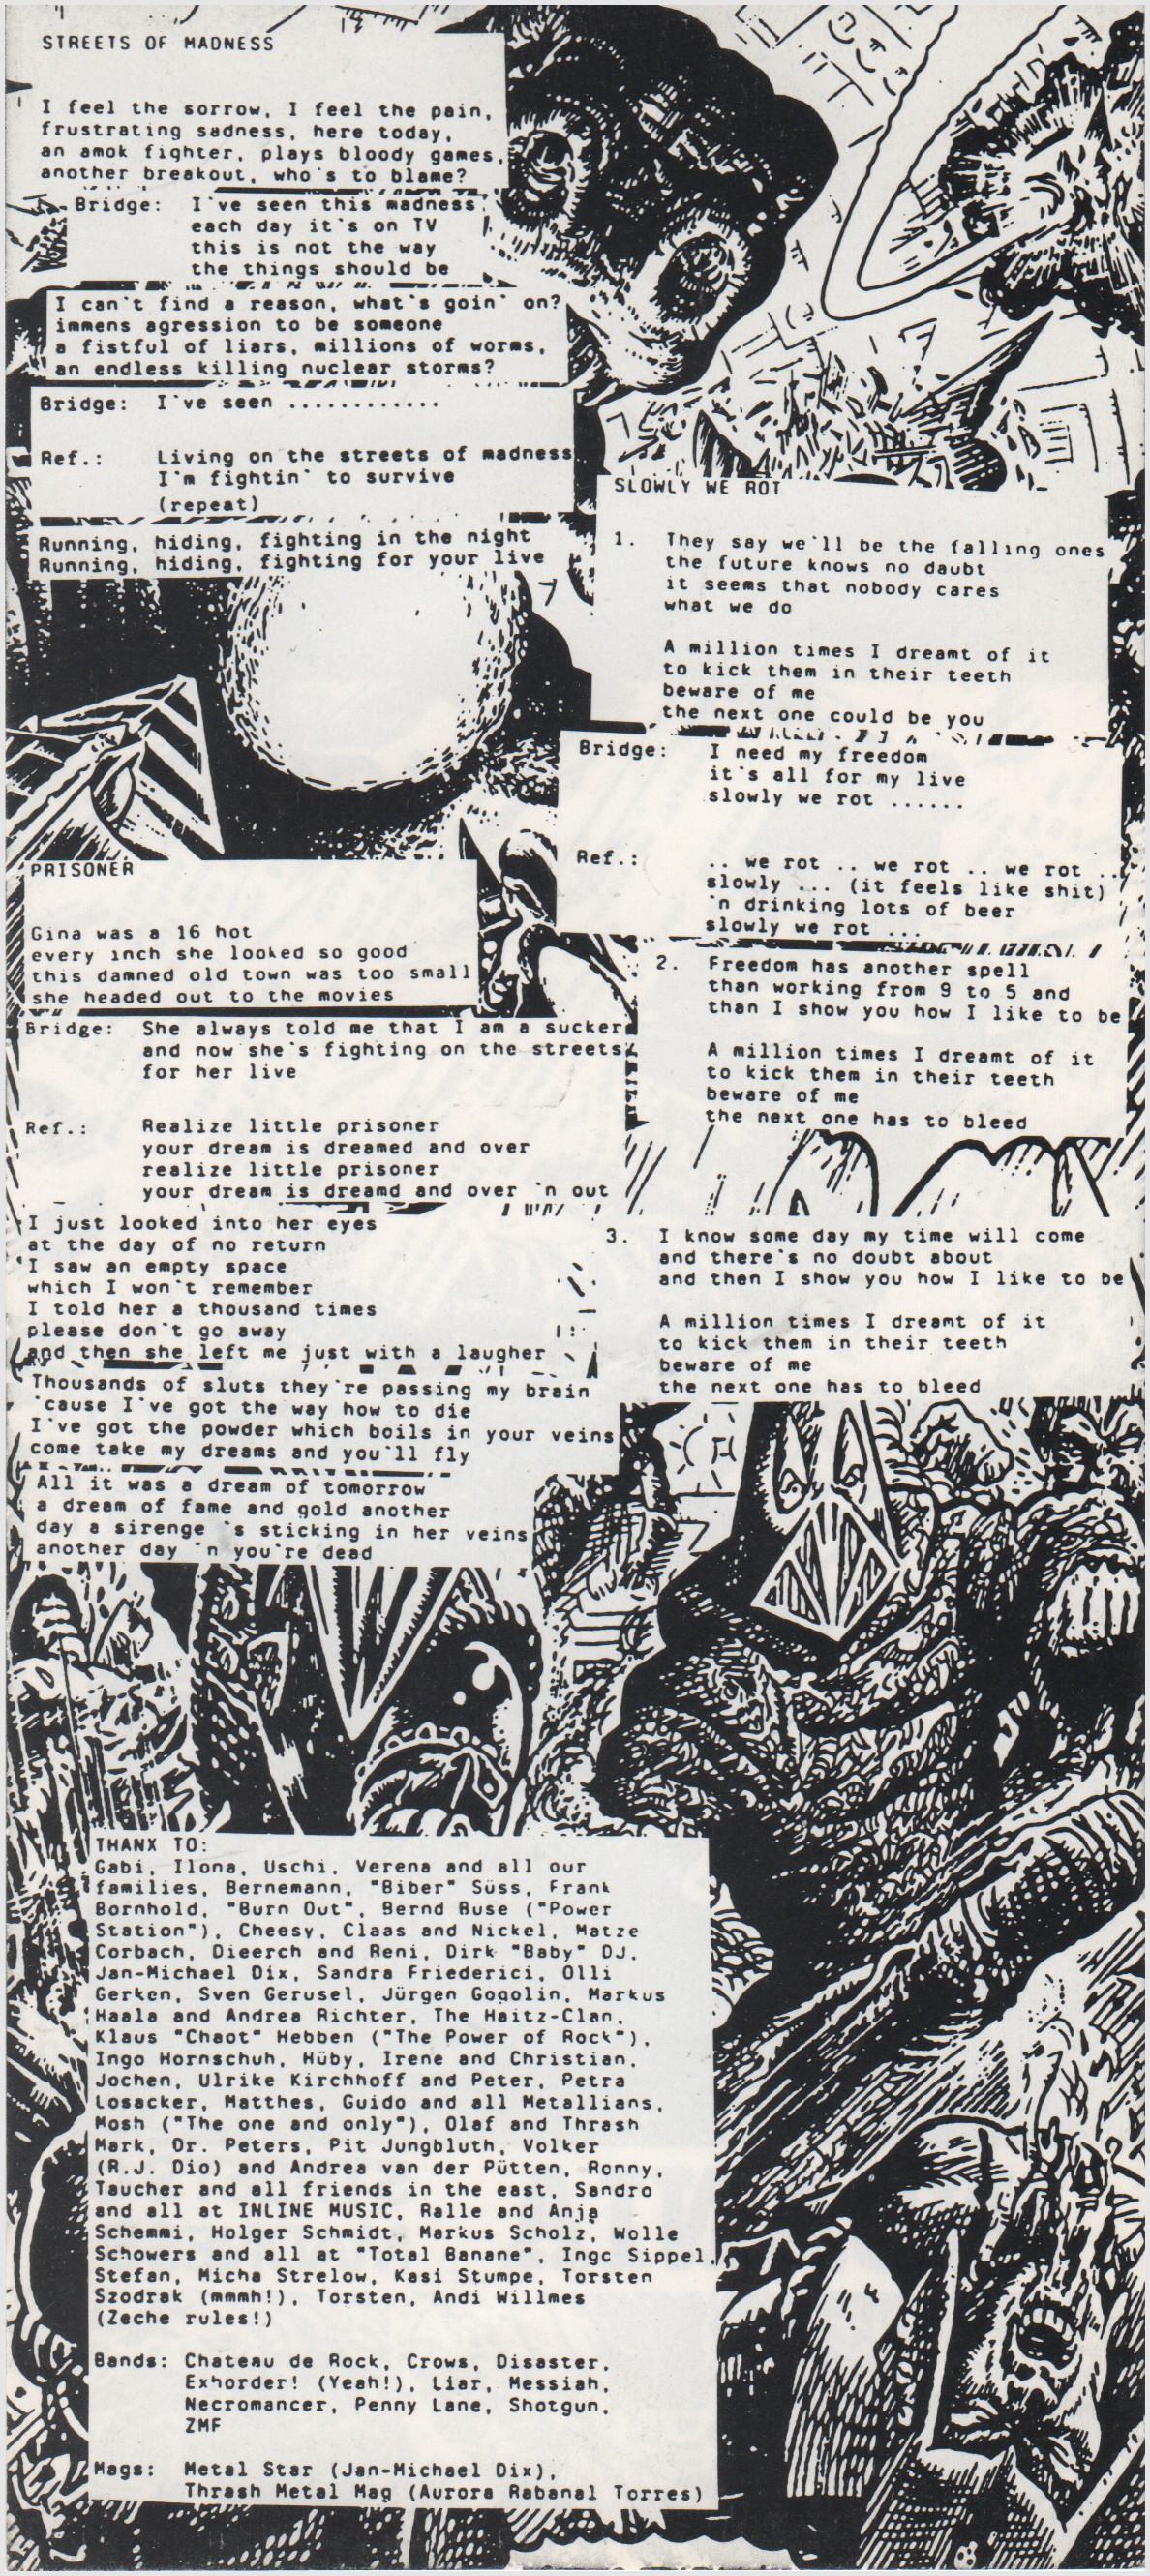 STREETS OF MADNESS
I feel the sorrow, I feel the pain,
frustrating sadness, here today,
an amok fighter, plays bloody games,
another breakout, who's to blame?
Bridge: I've seen this madness
each day it's on TV
this is not the way
the things should be
I can't find a reason, what's goin' on?
immens agression to be someone
a fistful of liars, millions of worms,
an endless killing nuclear storms?
Bridge: I've seen ............
Ref.: Living on the streets of madness
I'm fightin' to survive
(repeat)
Running, hiding, fighting in the night
Running, hiding, fighting for your live
SLOWLY WE ROT
1. They say we'll be the falling ones
the future knows no daubt
it seems that nobody cares
what we do
A million times I dreamt of it
to kick them in their teeth
beware of me
the next one could be you
Bridge: I need my freedom
it's all for my live
slowly we rot ......
Ref.: .. we rot .. we rot .. we rot ..
slowly ... (it feels like shit)
'n drinking lots of beer
slowly we rot ...
2. Freedom has another spell
than working from 9 to 5 and
than I show you how I like to be
A million times I dreamt of it
to kick them in their teeth
beware of me
the next one has to bleed
3. I know some day my time will come
and there's no doubt about
and then I show you how I like to be
A million times I dreamt of it
to kick them in their teeth
beware of me
the next one has to bleed
PRISONER
Gina was a 16 hot
every inch she looked so good
this damned old town was too small
she headed out to the movies
Bridge: She always told me that I am a sucker
and now she's fighting on the streets
for her live
Ref.: Realize little prisoner
your dream is dreamed and over
realize little prisoner
your dream is dreamd and over 'n out
I just looked into her eyes
at the day of no return
I saw an empty space
which I won't remember
I told her a thousand times
please don't go away
and then she left me just with a laugher
Thousands of sluts they're passing my brain
'cause I've got the way how to die
I've got the powder which boils in your veins
come take my dreams and you'll fly
All it was a dream of tomorrow
a dream of fame and gold another
day a sirenge 's sticking in her veins
another day 'n you're dead
THANX TO:
Gabi, Ilona, Uschi, Verena and all our
families, Bernemann, "Biber" Süss, Frank
Bornhold, "Burn Out", Bernd Buse ("Power
Station"), Cheesy, Claas and Nickel, Matze
Corbach, Dieerch and Reni, Dirk "Baby" DJ,
Jan-Michael Dix, Sandra Friederici, Olli
Gerken, Sven Gerusel, Jürgen Gogolin, Markus
Haala and Andrea Richter, The Haitz-Clan,
Klaus "Chaot" Hebben ("The Power of Rock"),
Ingo Hornschuh, Hüby, Irene and Christian,
Jochen, Ulrike Kirchhoff and Peter, Petra
Losacker, Matthes, Guido and all Metallians,
Mosh ("The one and only"), Olaf and Thrash
Mark, Dr. Peters, Pit Jungbluth, Volker
(R.J. Dio) and Andrea van der Pütten, Ronny,
Taucher and all friends in the east, Sandro
and all at INLINE MUSIC, Ralle and Anja
Schemmi, Holger Schmidt, Markus Scholz, Wolle
Schowers and all at "Total Banane", Ingo Sippel,
Stefan, Micha Strelow, Kasi Stumpe, Torsten
Szodrak (mmmh!), Torsten, Andi Willmes
(Zeche rules!)
Bands: Chateau de Rock, Crows, Disaster,
Exhorder! (Yeah!), Liar, Messiah,
Necromancer, Penny Lane, Shotgun,
ZMF
Mags: Metal Star (Jan-Michael Dix),
Thrash Metal Mag (Aurora Rabanal Torres)